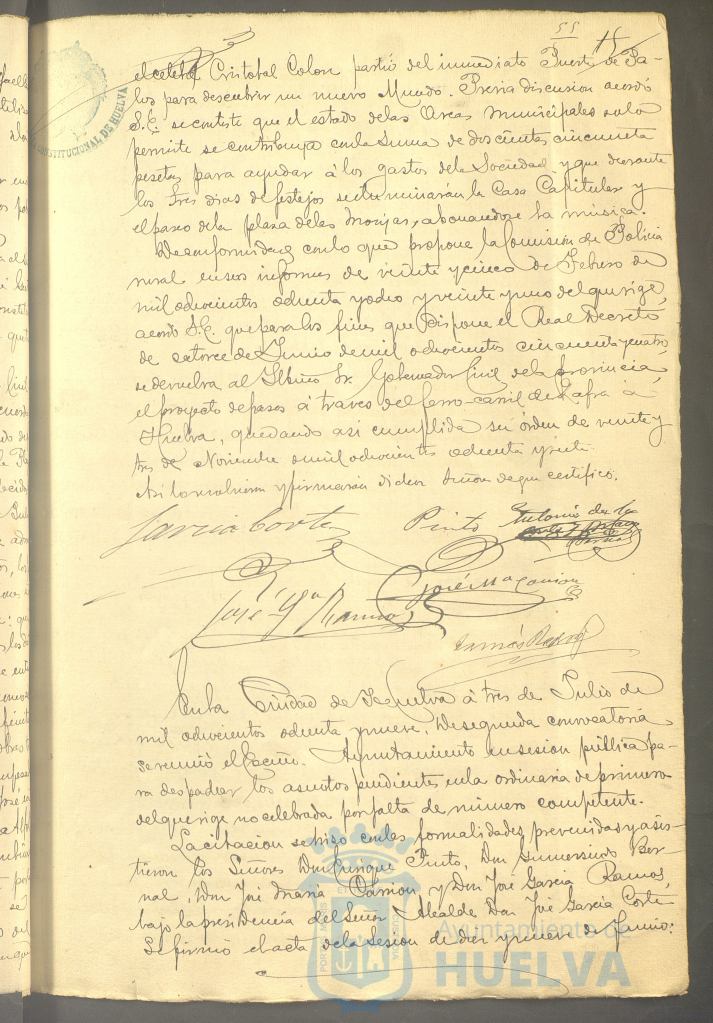 55
el celebre Cristobal Colon partió del inmediato Puerto de Pa-
los para descubrir un nuevo Mundo. Previa discusion acordó
S.E. se conteste que el estado de las Arcas municipales solo
permite se contribuya con la suma de doscientas cincuenta
pesetas para ayudar á los gastos de la Sociedad y que durante
los tres dias de festejos se iluminarán la Casa Capitular y
el paseo de la plaza de las Monjas, abonandose la música.
De conformidad con lo que propone la Comision de Policia
rural en sus informes de veinte y cinco de Febrero de
mil ochocientos ochenta y ocho y veinte y uno del que rige,
acordó S.E. que para los fines que dispone el Real Decreto
de catorce de Junio de mil ochocientos cincuenta y cuatro,
se devuelva al Iltmo Sr. Gobernador Civil de la provincia,
el proyecto de pasos á traves del ferro-carril de Zafra á
Huelva, quedando asi cumplida su órden de veinte y
tres de Noviembre de mil ochocientos ochenta y siete.
Asi lo resolvieron y firmarán dichos Señores de que certifico.
Garcia Cortes Pinto Antonio de la
José Mª Carrion
José Gª Ramos
En la Ciudad de Huelva á tres de Julio de
mil ochocientos ochenta y nueve, de segunda convocatoria
se reunió el Excmo. Ayuntamiento en sesion pública pa-
ra despachar los asuntos pendientes en la ordinaria de primero
del que rige no celebrada por falta de número competente.
La citacion se hizo con las formalidades prevenidas y asis-
tieron los Señores Don Enrique Pinto, Don Gumersindo Ber-
nal, Don José Maria Carrion y Don José Garcia Ramos
bajo la presidencia del Señor Alcalde Don José Garcia Cortes
Se firmó el acta de la sesion de diez y nueve de Junio.
CONSTITUCIONAL DE HUELVA
Ayuntamiento de
HUELVA